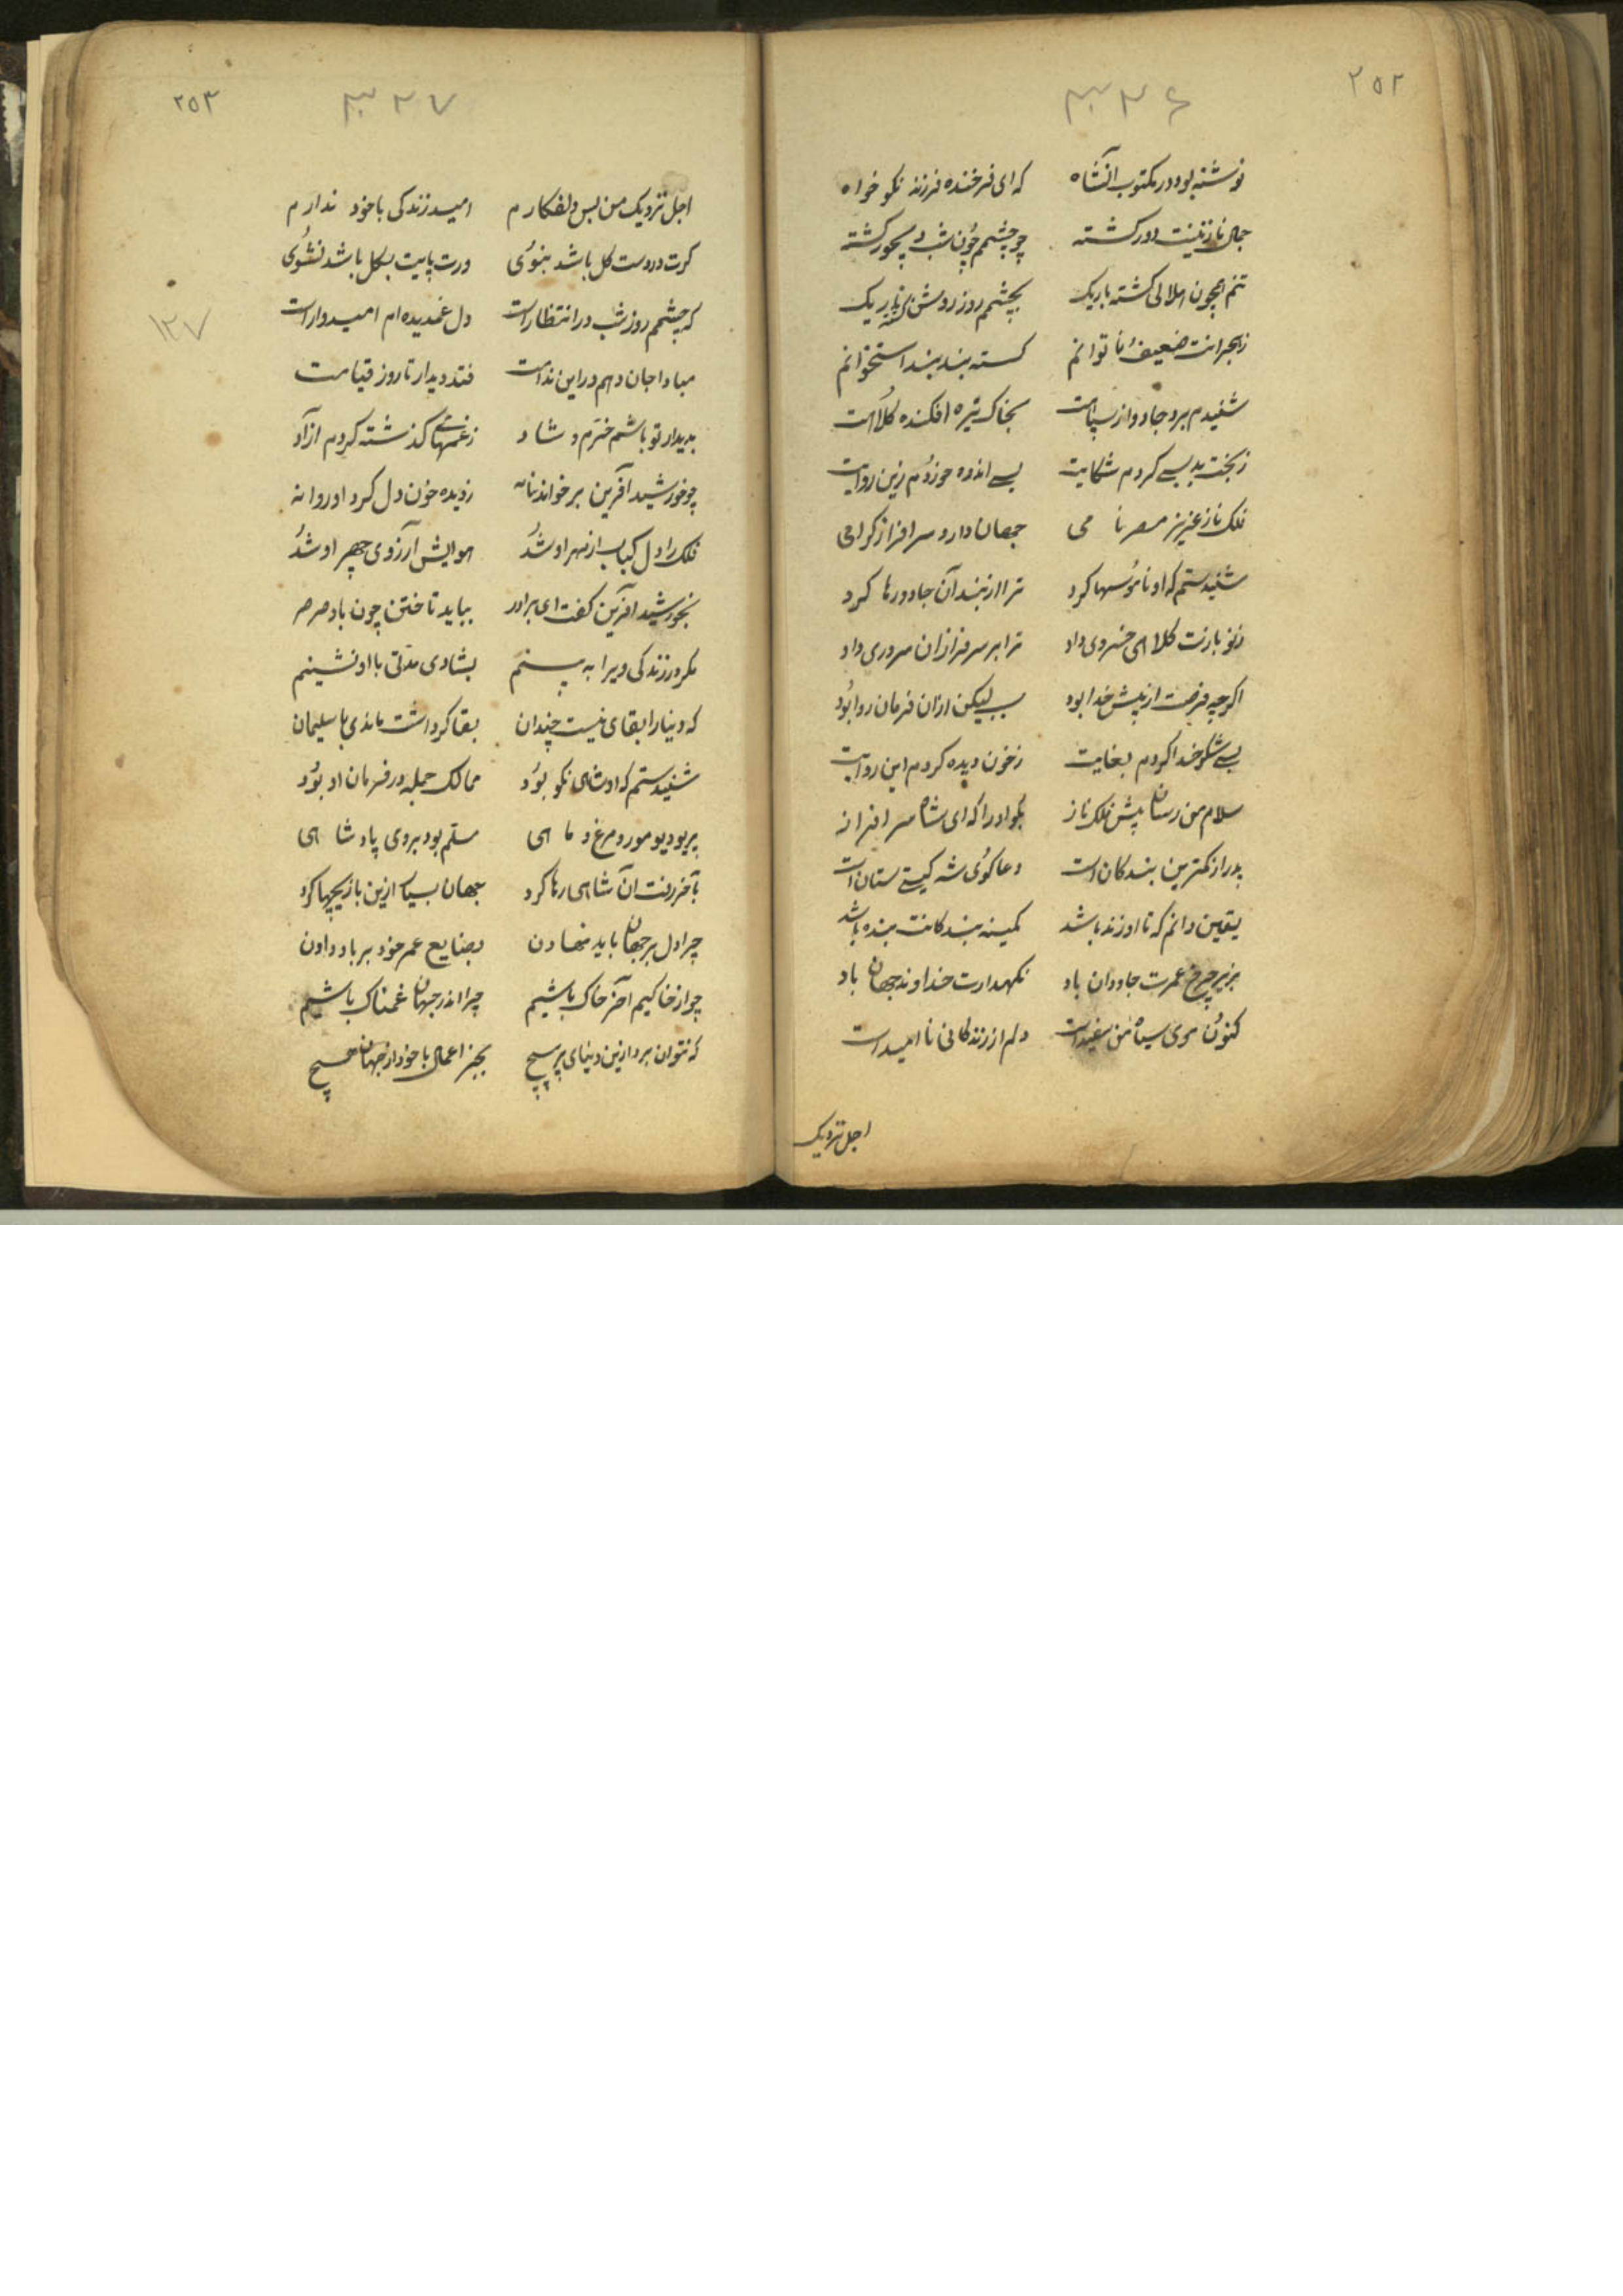 ۲۵۲
۳۲۶
نوشته بود در مکتوب آنشاه که ای فرخنده فرزند نکو خواه
جمال نازنینت دور کشته چو چشمم چون شب دیجور کشته
تنم همچون هلالی کشته باریک بچشمم روز روشن کشته تاریک
زهجرانت ضعیف و ناتوانم کسسته بند بند استخوانم
شنیدم برد جادو از سپاهت بخاک تیره افکنده کلاهت
زبخت بد بسی کردم شکایت بسی اندوه خوردم زین روایت
فلک ناز عزیز مصر نامی جهان دار و سرافراز کرامی
شنیدستم که او ناموسها کرد ترا از بند آن جادو رها کرد
زنو بازت کلاهی خسروی داد ترا بر سرفرازان سروری داد
اکرچه فرصت از پیش خدا بود لیکن ازان فرمان روا بود
بسی شکر خدا کردم بغایت زخون دیده کردم این روایت
سلام من رسان پیش فلک ناز بکو او را که ای شاه سرافراز
پدر از کمترین بندکان است دعا کوی شه کیتی ستان است
یقین دانم که تا او زنده باشد کمینه بندکانت بنده باشد
بزیر چرخ عمرت جاودان باد نکهدارت خداوند جهان باد
کنون موی سیاه من سفید است دلم از زندکانی نا امید است
اجل نزدیک
۲۵۳
۳۲۷
اجل نزدیک من بس دلفکارم امید زندکی با خود ندارم
کرت در دست کل باشد بنوی ورت پایت بکل باشد نشوی
که چشمم روز شب در انتظار است دل غمدیده ام امیدوار است
مبادا جان دهم در این ندامت فتد دیدار تا روز قیامت
بدیدار تو باشم خرم و شاد زغمهای کذشته کردم ازآد
چو خورشید آفرین برخواند نامه زدیده خون دل کرد او روانه
فلک را دل کباب از مهر او شد هوایش آرزوی چهر او شد
بخورشید آفرین کفت ای برادر بباید تاختن چون باد صرصر
مکر در زندکی ویرا به بینم بشادی مدتی با او نشینم
۱۲۷
که دنیا را بقای نیست چندان بقا کر داشت ماندی با سلیمان
شنیدستم که او شاهی نکو بود ممالک جمله در فرمان او بود
پری و دیو مور و مرغ و ماهی مسلم بود بروی پادشاهی
بآخر رفت آن شاهی رها کرد جهان بسیار ازین بازیچها کرد
چرا دل بر جهان باید نهادن بضایع عمر خود بر باد دادن
چو از خاکیم آخر خاک باشیم چرا اندر جهان غمناک باشیم
که نتوان برد ازین دنیای پر پیچ بجز اعمال با خود از جهان هیچ